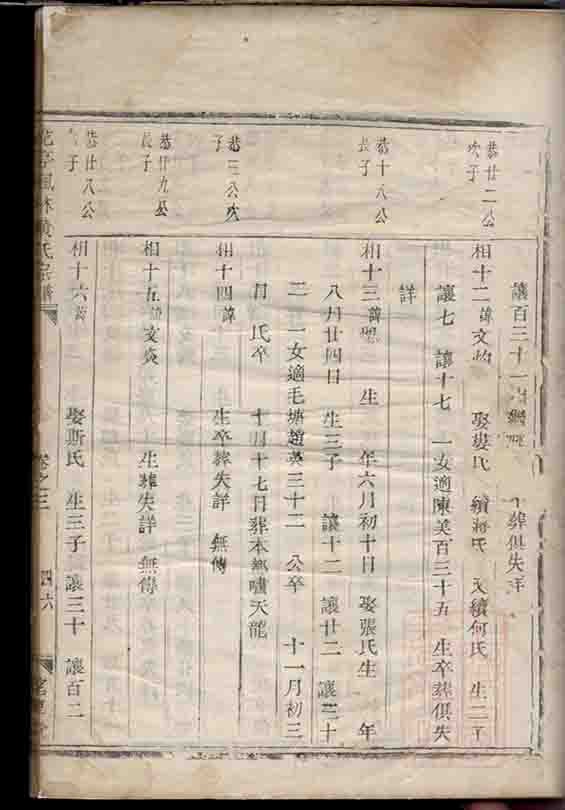 讓百三十一
葬俱失詳
恭廿二公
次子
相十二諱文 娶婁氏 續蔣氏 又續何氏 生二子
讓七 讓十七 一女適陳美百三十五 生卒葬俱失
詳
恭十八公
長子
相十三諱 生 年六月初十日 娶張氏生 年
八月廿四日 生三子 讓十二 讓廿二 讓三十
二 一女適毛塘趙英三十二 公卒 十一月初三
日 氏卒 十月十七日葬本 天龍
恭三公次
子
相十四諱 生卒葬失詳 無傳
恭廿九公
長子
相十五諱文炎 生葬失詳 無傳
恭廿八公
子
相十六諱 娶斯氏 生三子 讓三十 讓百二
黃氏宗譜
卷之三
四六